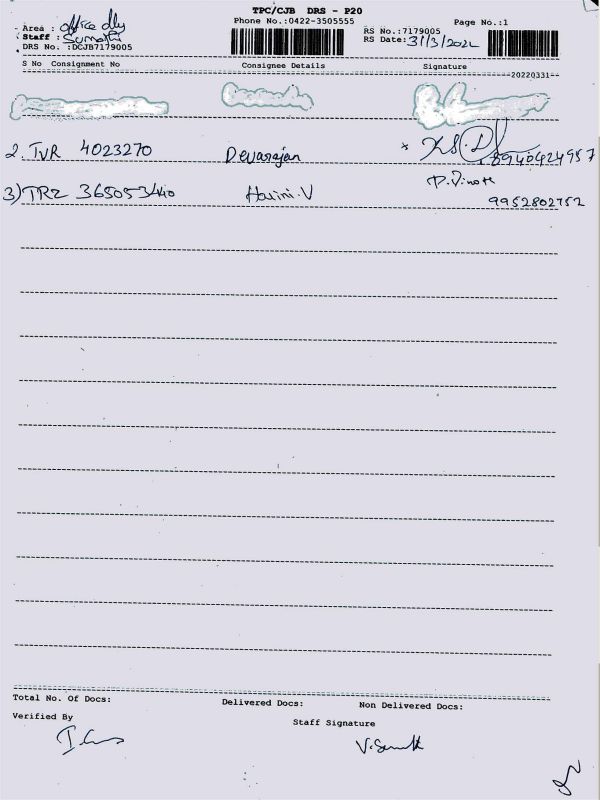 TPC/CJB DRS - P20
Phone No.:0422-3505555
Page No.:1
Area : office dly
Staff : Sumathi
DRS No. :DCJB7179005
RS No.:7179005
RS Date: 31/3/2022
S No Consignment No Consignee Details Signature
20220331
2. TVR 4023270 Devarajan x K.S.D 8940424957
3) TRZ 365053440 Harini.V P.Vinoth
9952802752
Total No. Of Docs: Delivered Docs: Non Delivered Docs:
Verified By Staff Signature
V.Sumathi